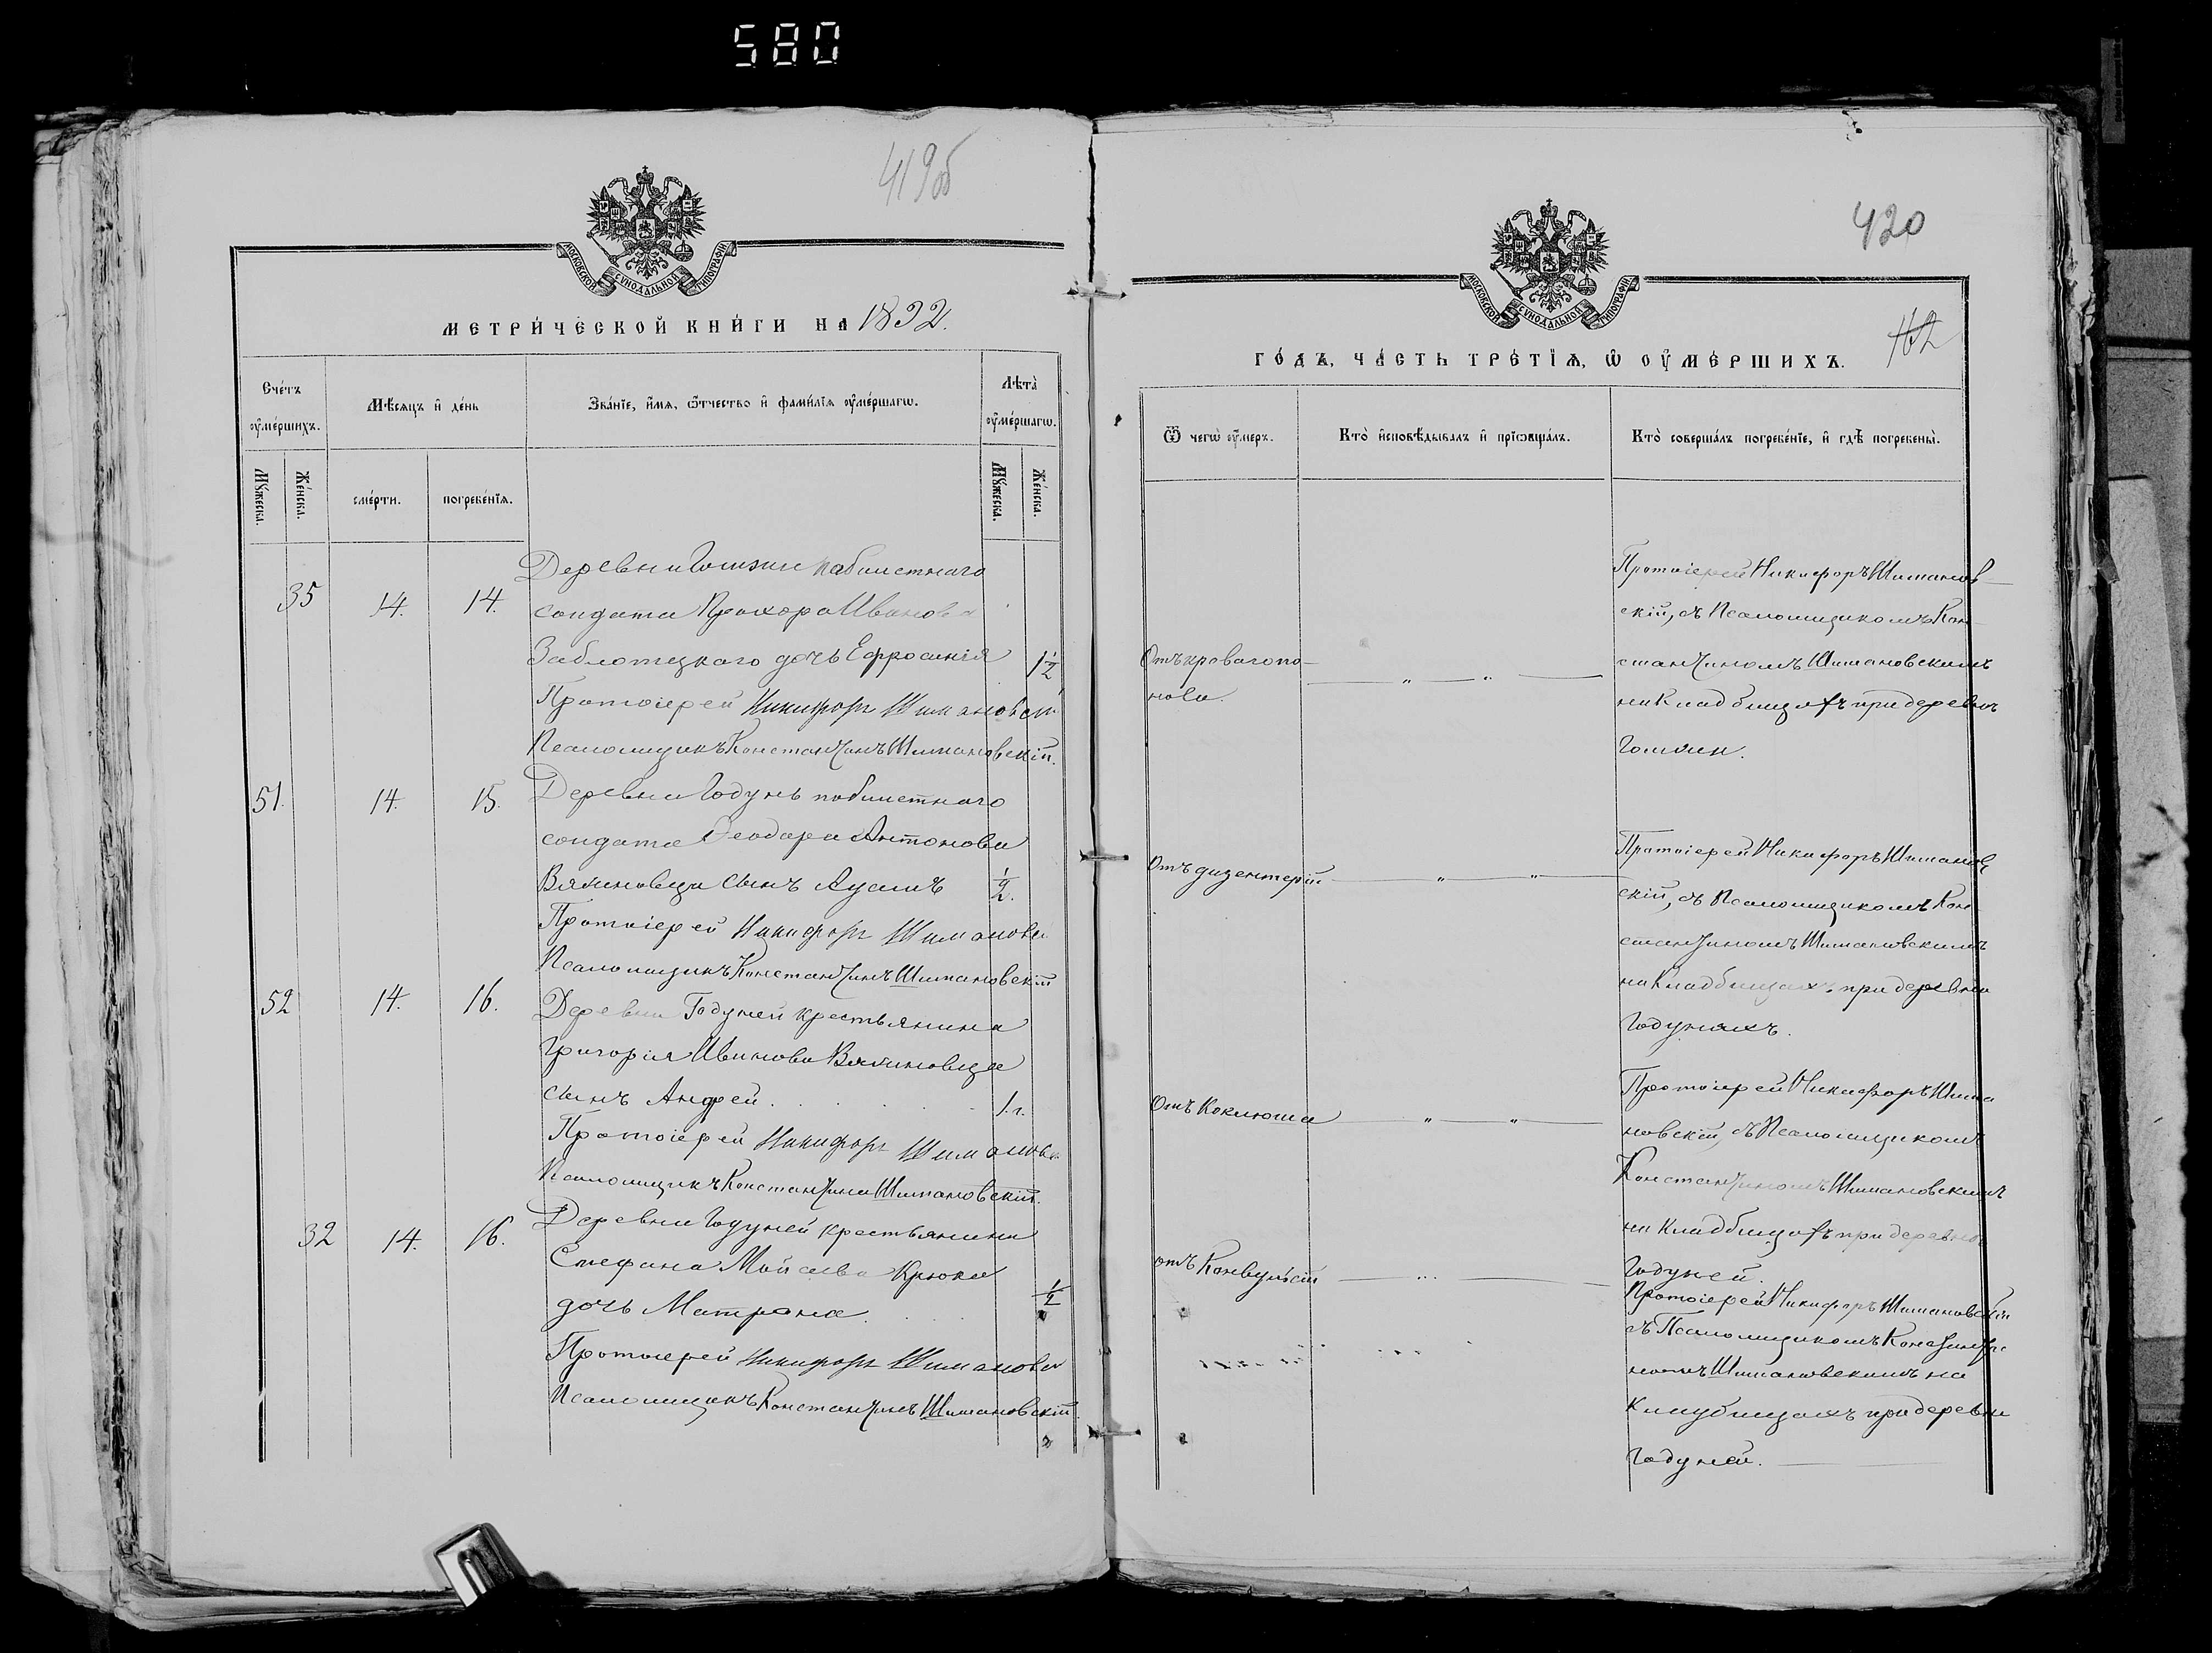 580
419об
МОСКОВСКОЙ СѴНОДАЛЬНОЙ ТИПОГРАФІИ
МЕТРИ́ЧЕСКОЙ КНИ́ГИ НА 1892.
Сче́тъ ᲂу҆ме́ршихъ.
Мѣ́сяцъ и҆ де́нь
Зва́нїе, и҆́мя, ѻ҆́тчество и҆ фами́лїя ᲂу҆ме́ршагѡ.
Лѣ́та ᲂу҆ме́ршагѡ.
Мꙋ́жеска.
Же́нска.
сме́рти.
погребе́нїѧ.
Мꙋ́жеска.
Же́нска.
35 14. 14.
Деревни кабилетнаго
солдата Прохора Иванова
Заблотцкаго дочь Ефросинія 1 1/2
Протоіерей Никифоръ Шимановскій
Псаломщикъ Константинъ Шимановскій.
51. 14. 15. Деревни Годунь
солдата Ѳеодора Антонова
сынъ 1/2.
Протоіерей Никифоръ Шимановскій
Псаломщикъ Константинъ Шимановскій
52 14. 16. Деревни Годуней крестьянина
Григорія Иванова
сынъ Андрей. 1.г.
Протоіерей Никифоръ Шимановскій
Псаломщикъ Константинъ Шимановскій.
32 14. 16. Деревни Годуней крестьянина
Стефана Мойсеева Крюка
дочь Матрона. 1/2
Протоіерей Никифоръ Шимановскій
Псаломщикъ Константинъ Шимановскій
420
162
МОСКОВСКОЙ СѴНОДАЛЬНОЙ ТИПОГРАФІИ
ГО́ДЪ, ЧА́СТЬ ТРЕ́ТЇѦ, Ѡ҆ ОУ҆МЕ́РШИХЪ.
Ѿ чегѡ̀ ᲂу҆́меръ.
Кто̀ и҆сповѣ́дывалъ и҆ прїѡбща́лъ.
Кто̀ соверша́лъ погребе́нїе, и҆ гдѣ̀ погребены̀.
Отъ кроваго по-
носа.
Протоіерей Никифоръ Шиманов-
скій, съ Псаломщикомъ Кон-
стантиномъ Шимановскимъ
на Кладбищахъ при деревнѣ
Отъ дизентеріи
Протоіерей Никифоръ Шиманов
скій, съ Псаломщикомъ Кон
стантиномъ Шимановскимъ
на Кладбищахъ при деревни
Годуняхъ.
Отъ Коклюша
Протоіерей Никифоръ Шима
новскій, съ Псаломщикомъ
Константиномъ Шимановскимъ
на Кладбищахъ при деревнѣ
Годуней.
отъ Конвульсіи
Протоіерей Никифоръ Шимановскій
съ Псаломщикомъ
номъ Шимановскимъ на
Кладбищахъ при деревни
Годуней.